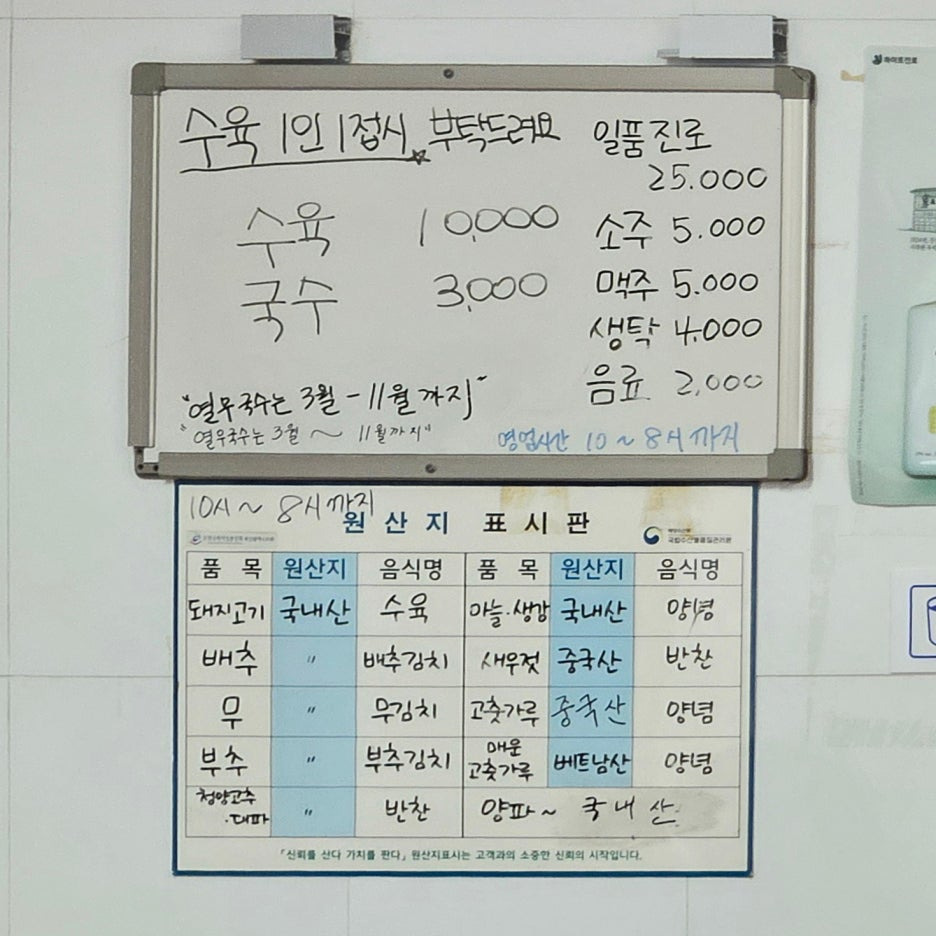 수육 1인 1접시 부탁드려요
수육 10,000
국수 3,000
일품진로
25.000
소주 5.000
맥주 5.000
생탁 4.000
음료 2,000
"열무국수는 3월 - 11월까지"
"열무국수는 3월 ~ 11월까지"
영업시간 10 ~ 8시까지
하이트진로
10시 ~ 8시까지
원산지 표시판
국립수산물품질관리원
품 목 원산지 음식명 품 목 원산지 음식명
돼지고기 국내산 수육 마늘·생강 국내산 양념
배추 " 배추김치 새우젓 중국산 반찬
무 " 무김치 고춧가루 중국산 양념
부추 " 부추김치 매운 고춧가루 베트남산 양념
청양고추·대파 " 반찬 양파 ~ 국내산
「신뢰를 산다 가치를 판다」 원산지표시는 고객과의 소중한 신뢰의 시작입니다.